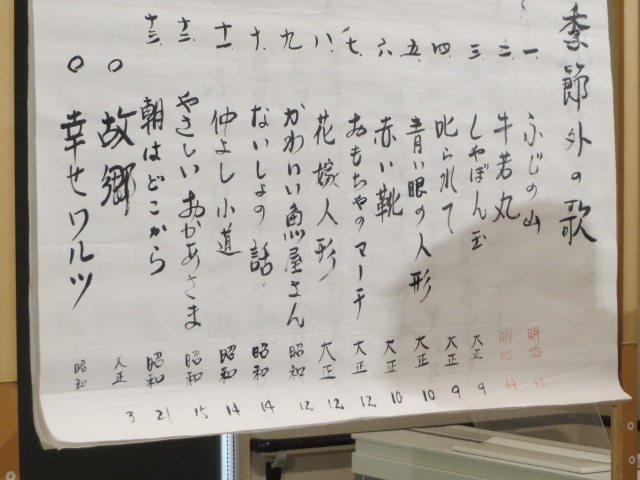 季節外の歌
一、ふじの山 明治 43
二、牛若丸 明治 44
三、しゃぼん玉 大正 9
四、叱られて 大正 9
五、青い眼の人形 大正 10
六、赤い靴 大正 10
七、おもちゃのマーチ 大正 12
八、花嫁人形 大正 12
九、かわいい魚屋さん 昭和 12
十、ないしょの話 昭和 14
十一、仲よし小道 昭和 14
十二、やさしいおかあさま 昭和 15
十三、朝はどこから 昭和 21
○ 故郷 大正 3
○ 幸せワルツ 昭和